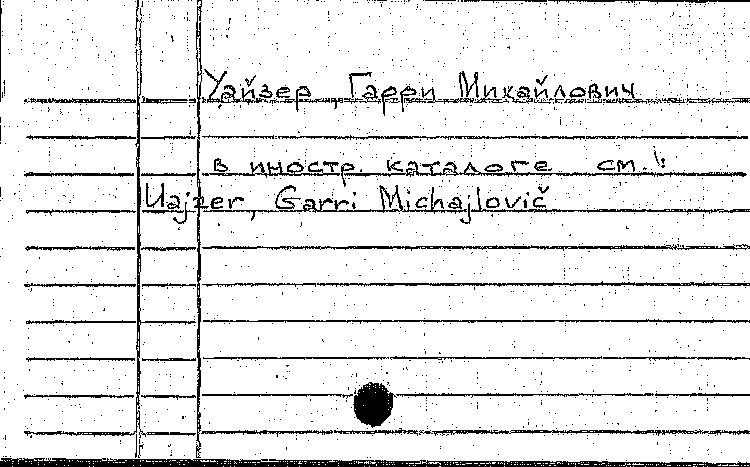 Уайзер, Гарри Михайлович
в иностр. каталоге см.:
Uajzer, Garri Michajlovič